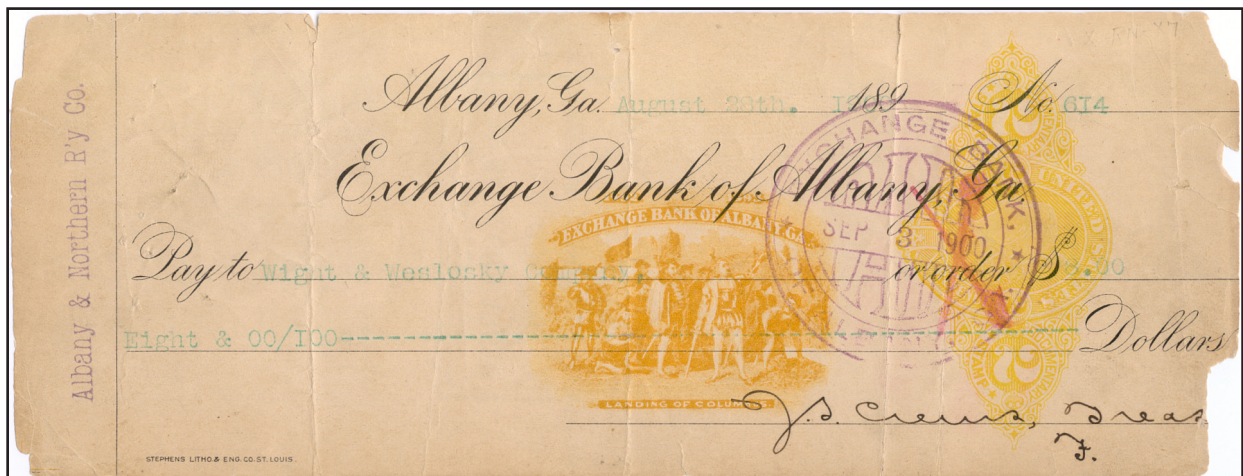 Albany & Northern R'y Co.
Albany, Ga. August 28th. 1900 189 No. 614
Exchange Bank of Albany, Ga.
EXCHANGE BANK OF ALBANY GA.
EXCHANGE BANK,
SEP 3 1900
UNITED STATES
Pay to Wight & Weslosky Company, or order $ 8.00
Eight & 00/100 Dollars
2
STAMP
LANDING OF COLUMBUS.
J.S. Crews, Treas.
F.
STEPHENS LITHO. & ENG. CO. ST. LOUIS.